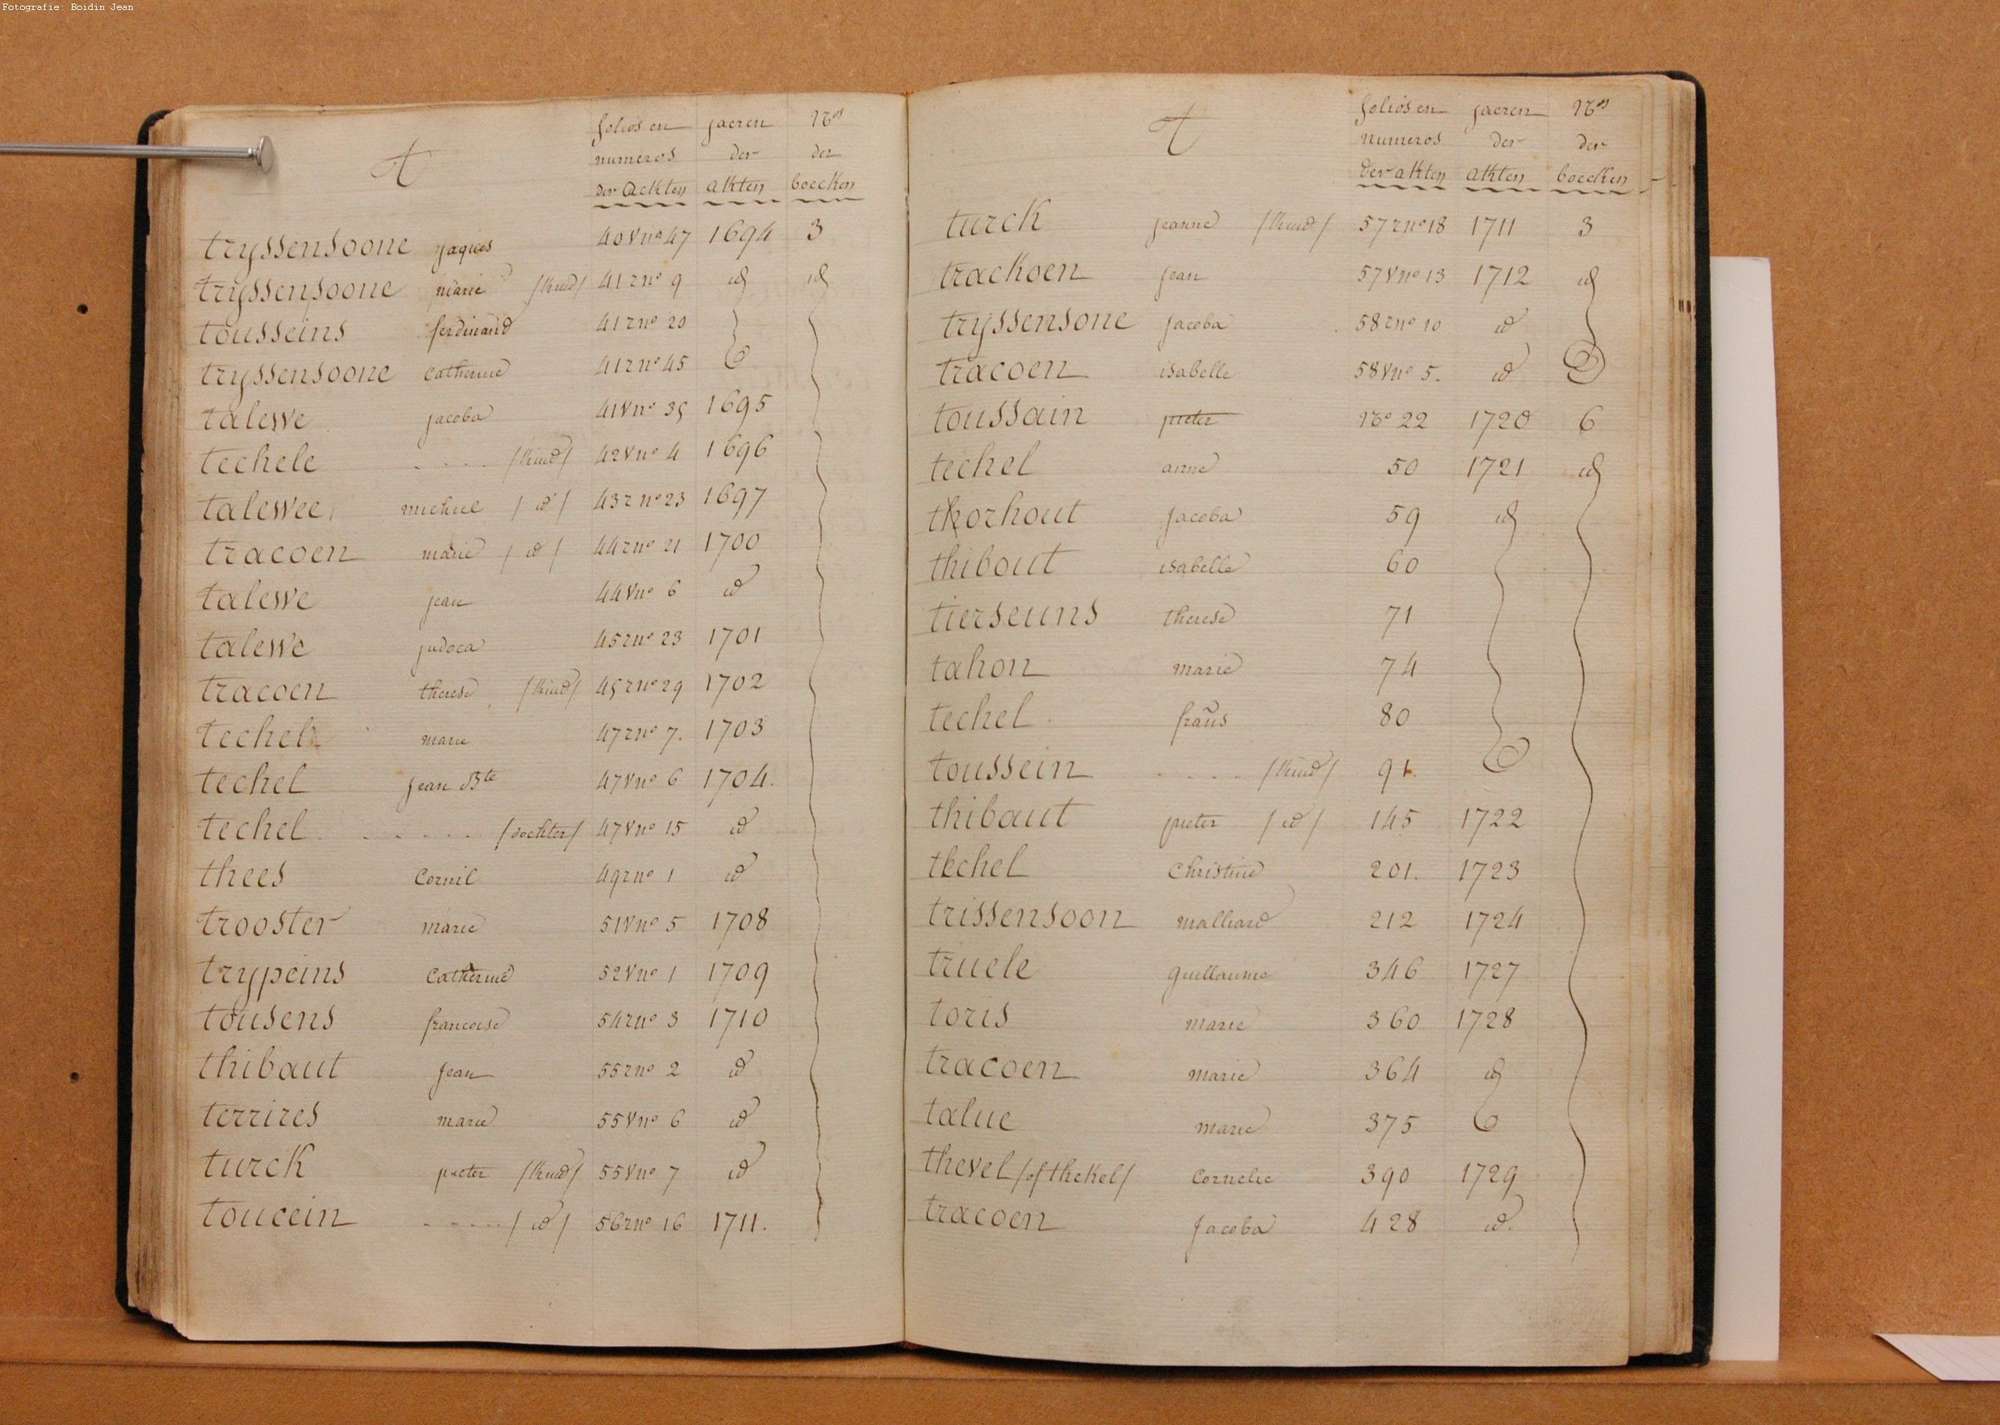 Fotografie: Boidin Jean
T folios en jaeren Nos
numeros der der
der ackten akten boecken
tryssensoone jaques 40 v no 47 1694 3
tryssensoone marie /kind/ 41 r no 9 id id
tousseins ferdinand 41 r no 20
tryssensoone catherine 41 r no 45
talewe jacoba 41 v no 35 1695
techele . . . . /kind/ 42 v no 4 1696
talewee michiel / id / 43 r no 23 1697
tracoen marie / id / 44 r no 21 1700
talewe jean 44 v no 6 id
talewe judoca 45 r no 23 1701
tracoen therese /kind/ 45 r no 29 1702
techel marie 47 r no 7. 1703
techel jean Bte 47 v no 6 1704.
techel . . . . . /dochter/ 47 v no 15 id
thees Cornil 49 r no 1 id
trooster marie 51 v no 5 1708
trypeins Catherine 52 v no 1 1709
tousens francoise 54 r no 3 1710
thibaut jean 55 r no 2 id
terrires marie 55 v no 6 id
turck pieter /kind/ 55 v no 7 id
toucein . . . . . / id / 56 r no 16 1711.
T folios en jaeren Nos
numeros der der
der akten akten boecken
turck jeanne /kind/ 57 r no 18 1711 3
trackoen jean 57 v no 13 1712 id
tryssensone jacoba 58 r no 10 id
tracoen isabelle 58 v no 5. id
toussain pieter No 22 1720 6
techel anne 50 1721 id
tkorhout jacoba 59 id
thibout isabelle 60
tierseuns therese 71
tahon marie 74
techel frans 80
toussein . . . . /kind/ 91.
thibaut pieter / id / 145 1722
techel Christine 201. 1723
trissensoon malliard 212 1724
truele guillaume 346 1727
toris marie 360 1728
tracoen marie 364 id
talue marie 375
thevel /of thekel/ Cornelie 390 1729
tracoen Jacoba 428 id.